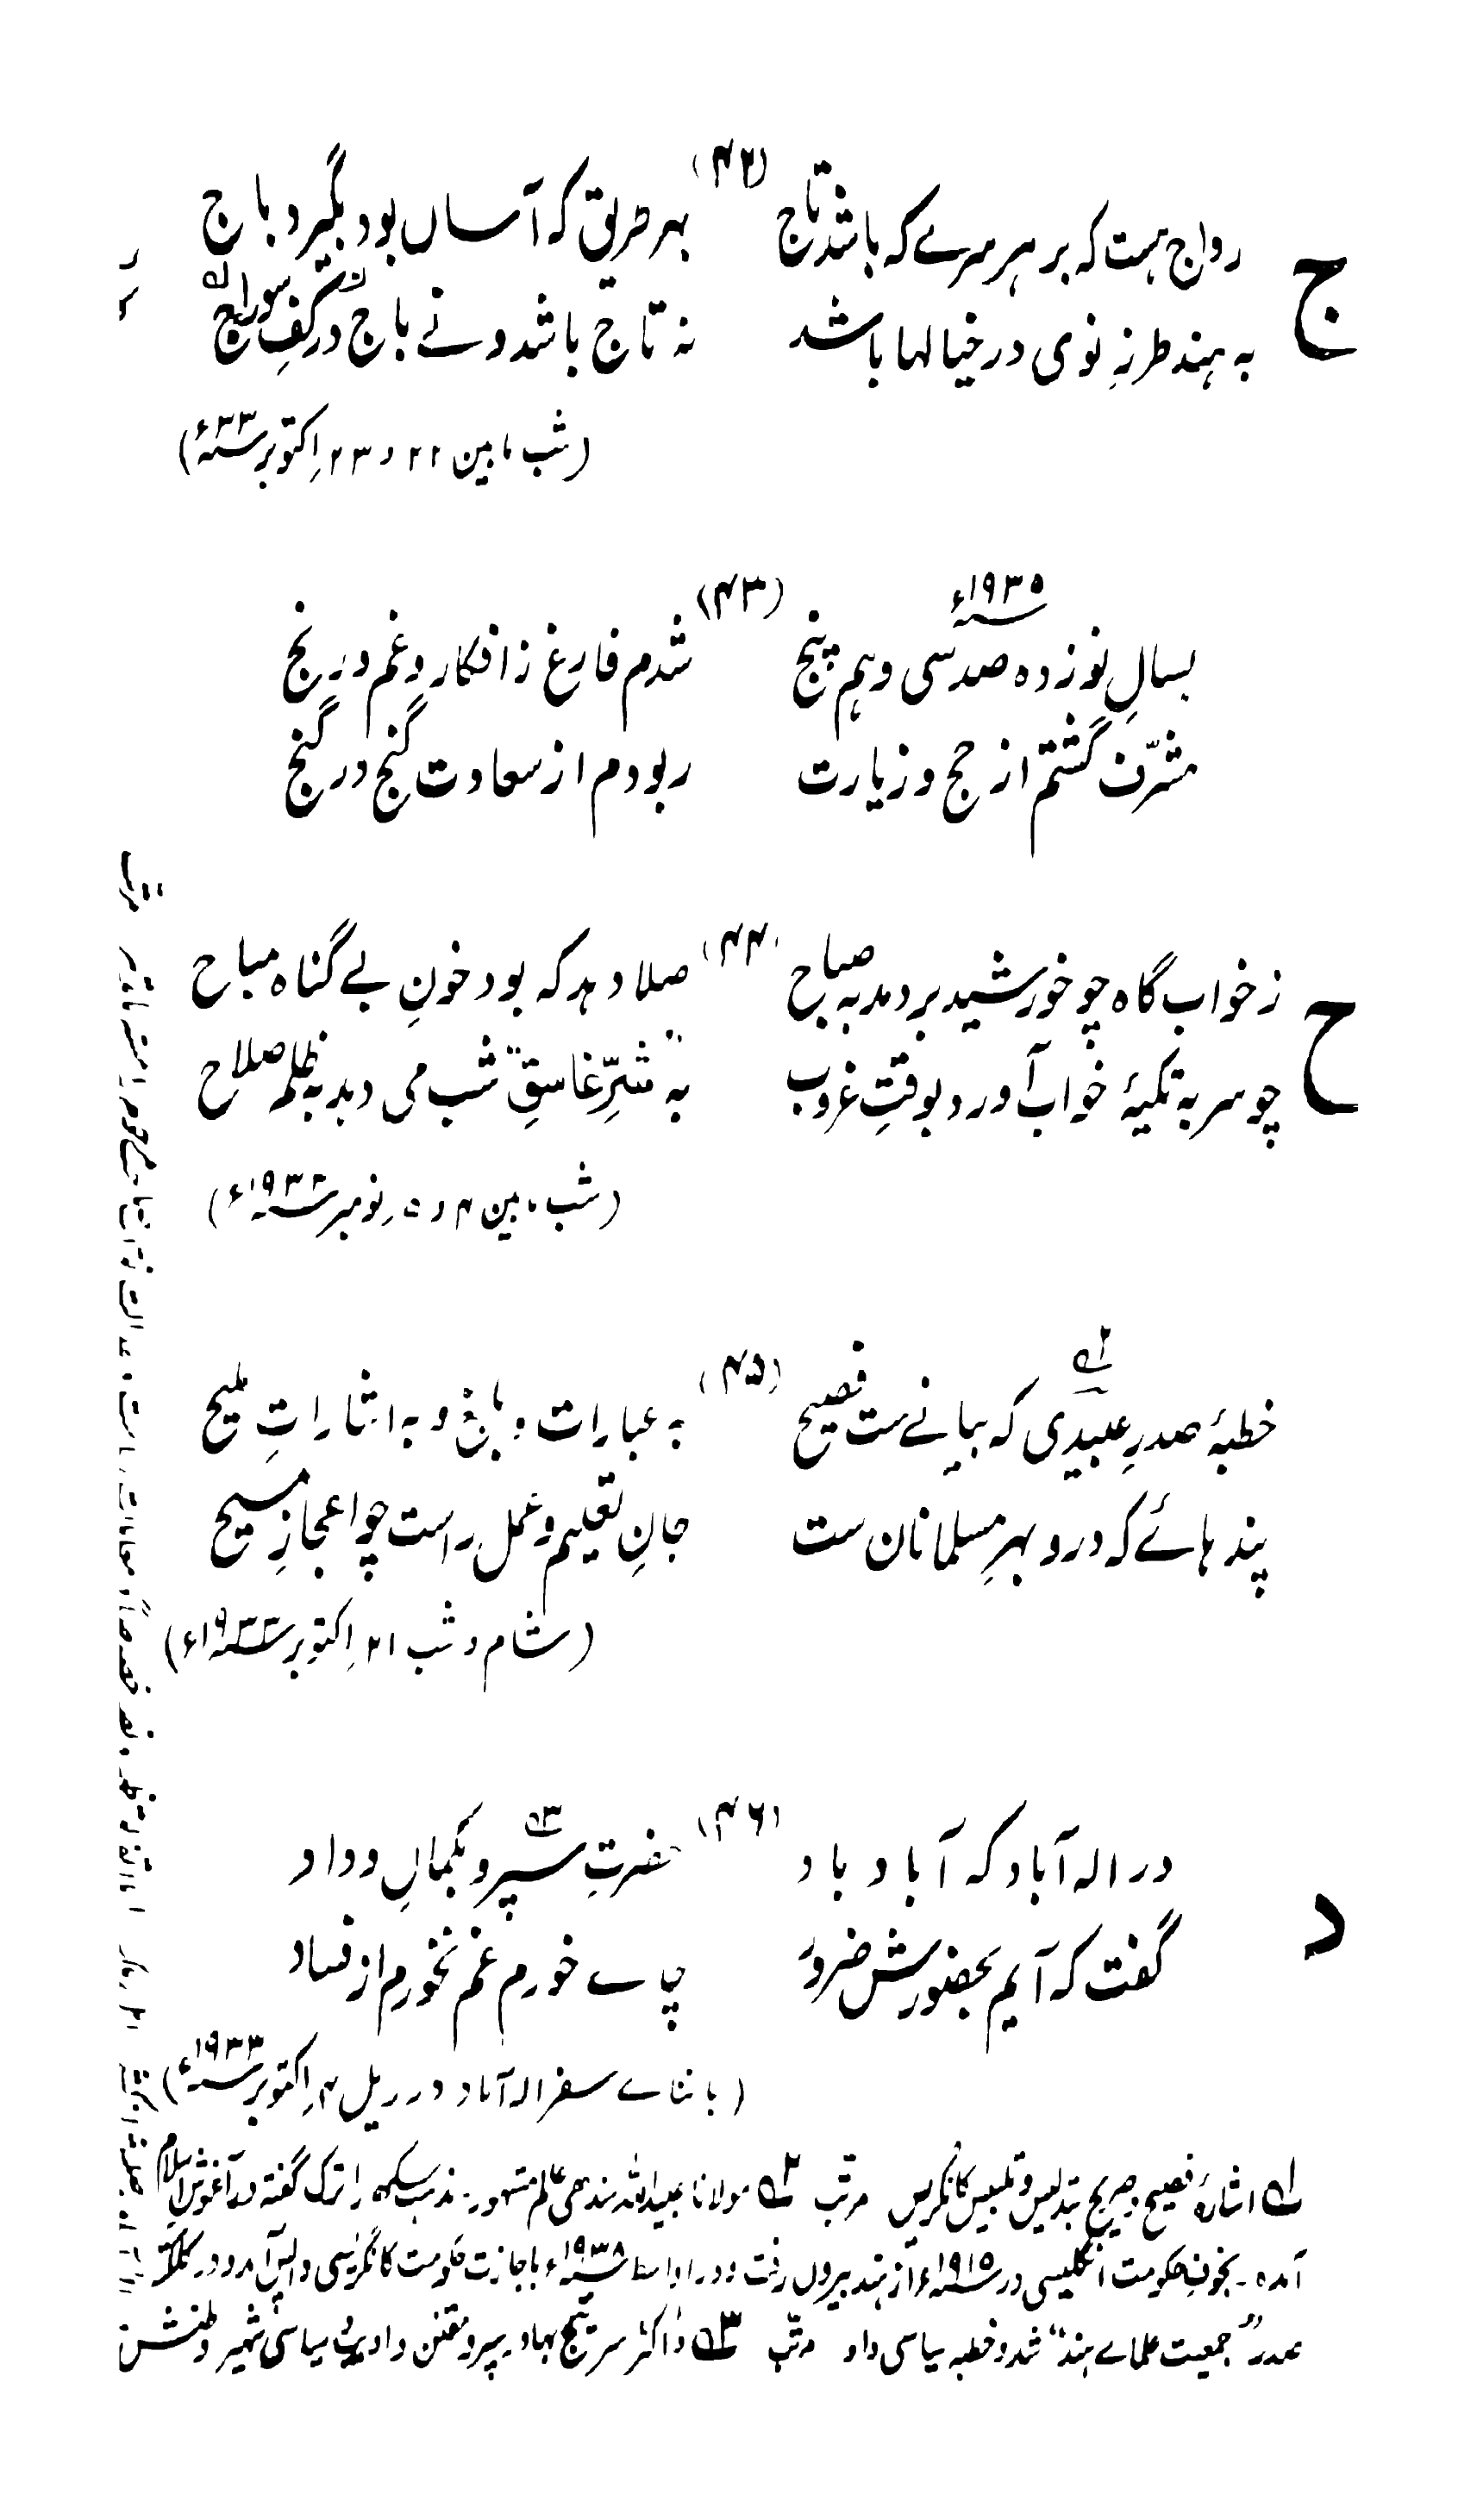 ج
(۴۲)
رواج ہست کہ بر ہر سرے کہ باشد تاج
بہر طریق کہ آساں بود بگیرد باج
بہ ہند طرزِ نوی در خیالہا باشد
نہ تاج باشد و نے باج در کفِ
(شب مابین ۲۲ و ۲۳ اکتوبر ۳۳ء)
(۴۳)
۱۹۳۵ء
بسالِ نوزدہ صد سی و ہم پنج
شدم فارغ ز افکار و غم و رنج
مشرّف گشتم از حج و زیارت
ربودم از سعادت گنج در گنج
ح
(۴۴)
ز خواب گاہ چو خورشید بر دمد بہ صباح
صلا دہد کہ بود خونِ بے گناہ مباح
چو سر بہ تکیۂ خواب آورد بوقتِ غروب
بہ شرِّ غاسقِ شب می دہد بہ ظلم صلاح
(شب مابین ۴ و ۵ نومبر ۱۹۳۲ء)
(۴۵)
خطبۂ صدرِ عبیدی کہ بیانے ست فصیح
بہ عبارات و بہ اشاراتِ ملیح
پند ہائے کہ درو بہرِ مسلمانان ست
جانِ تعلیم و عمل راست چو اعجازِ مسیح
(شام و شب ۲۱ اکتوبر)
د
(۴۶)
در الہ آباد کہ آباد باد
حضرتِ سپرو نگہبانِ وداد
گفت کہ آیم بحضورش ضرور
چاے خورم غم نخورم از فساد
(با ثناے سفر الہ آباد در ریل ۴ اکتوبر ۱۹۳۳ء)
لہ اشارۂ فصیح و صریح بتدلیس و تلبیس کانگریس مرتب ۲ہ مولانا عبیداللہ سندھی عالم مشہور۔ مذہب سکھ را ترک گفتہ در آغوش اسلام
آمدہ۔ بخوفِ حکومت انگلیسی در ۱۹۱۵ء از ہند بیروں رفت و در ۱۹۳۸ء باجازت حکومت کانگریسی واپس آمد و در کلکتہ
صدر "جمعیت علماے ہند" شد و خطبہ سیاسی داد مرتب ۳ہ ڈاکٹر سر تیج بہادر سپرو مقنن و ادیب و سیاسی شہیر